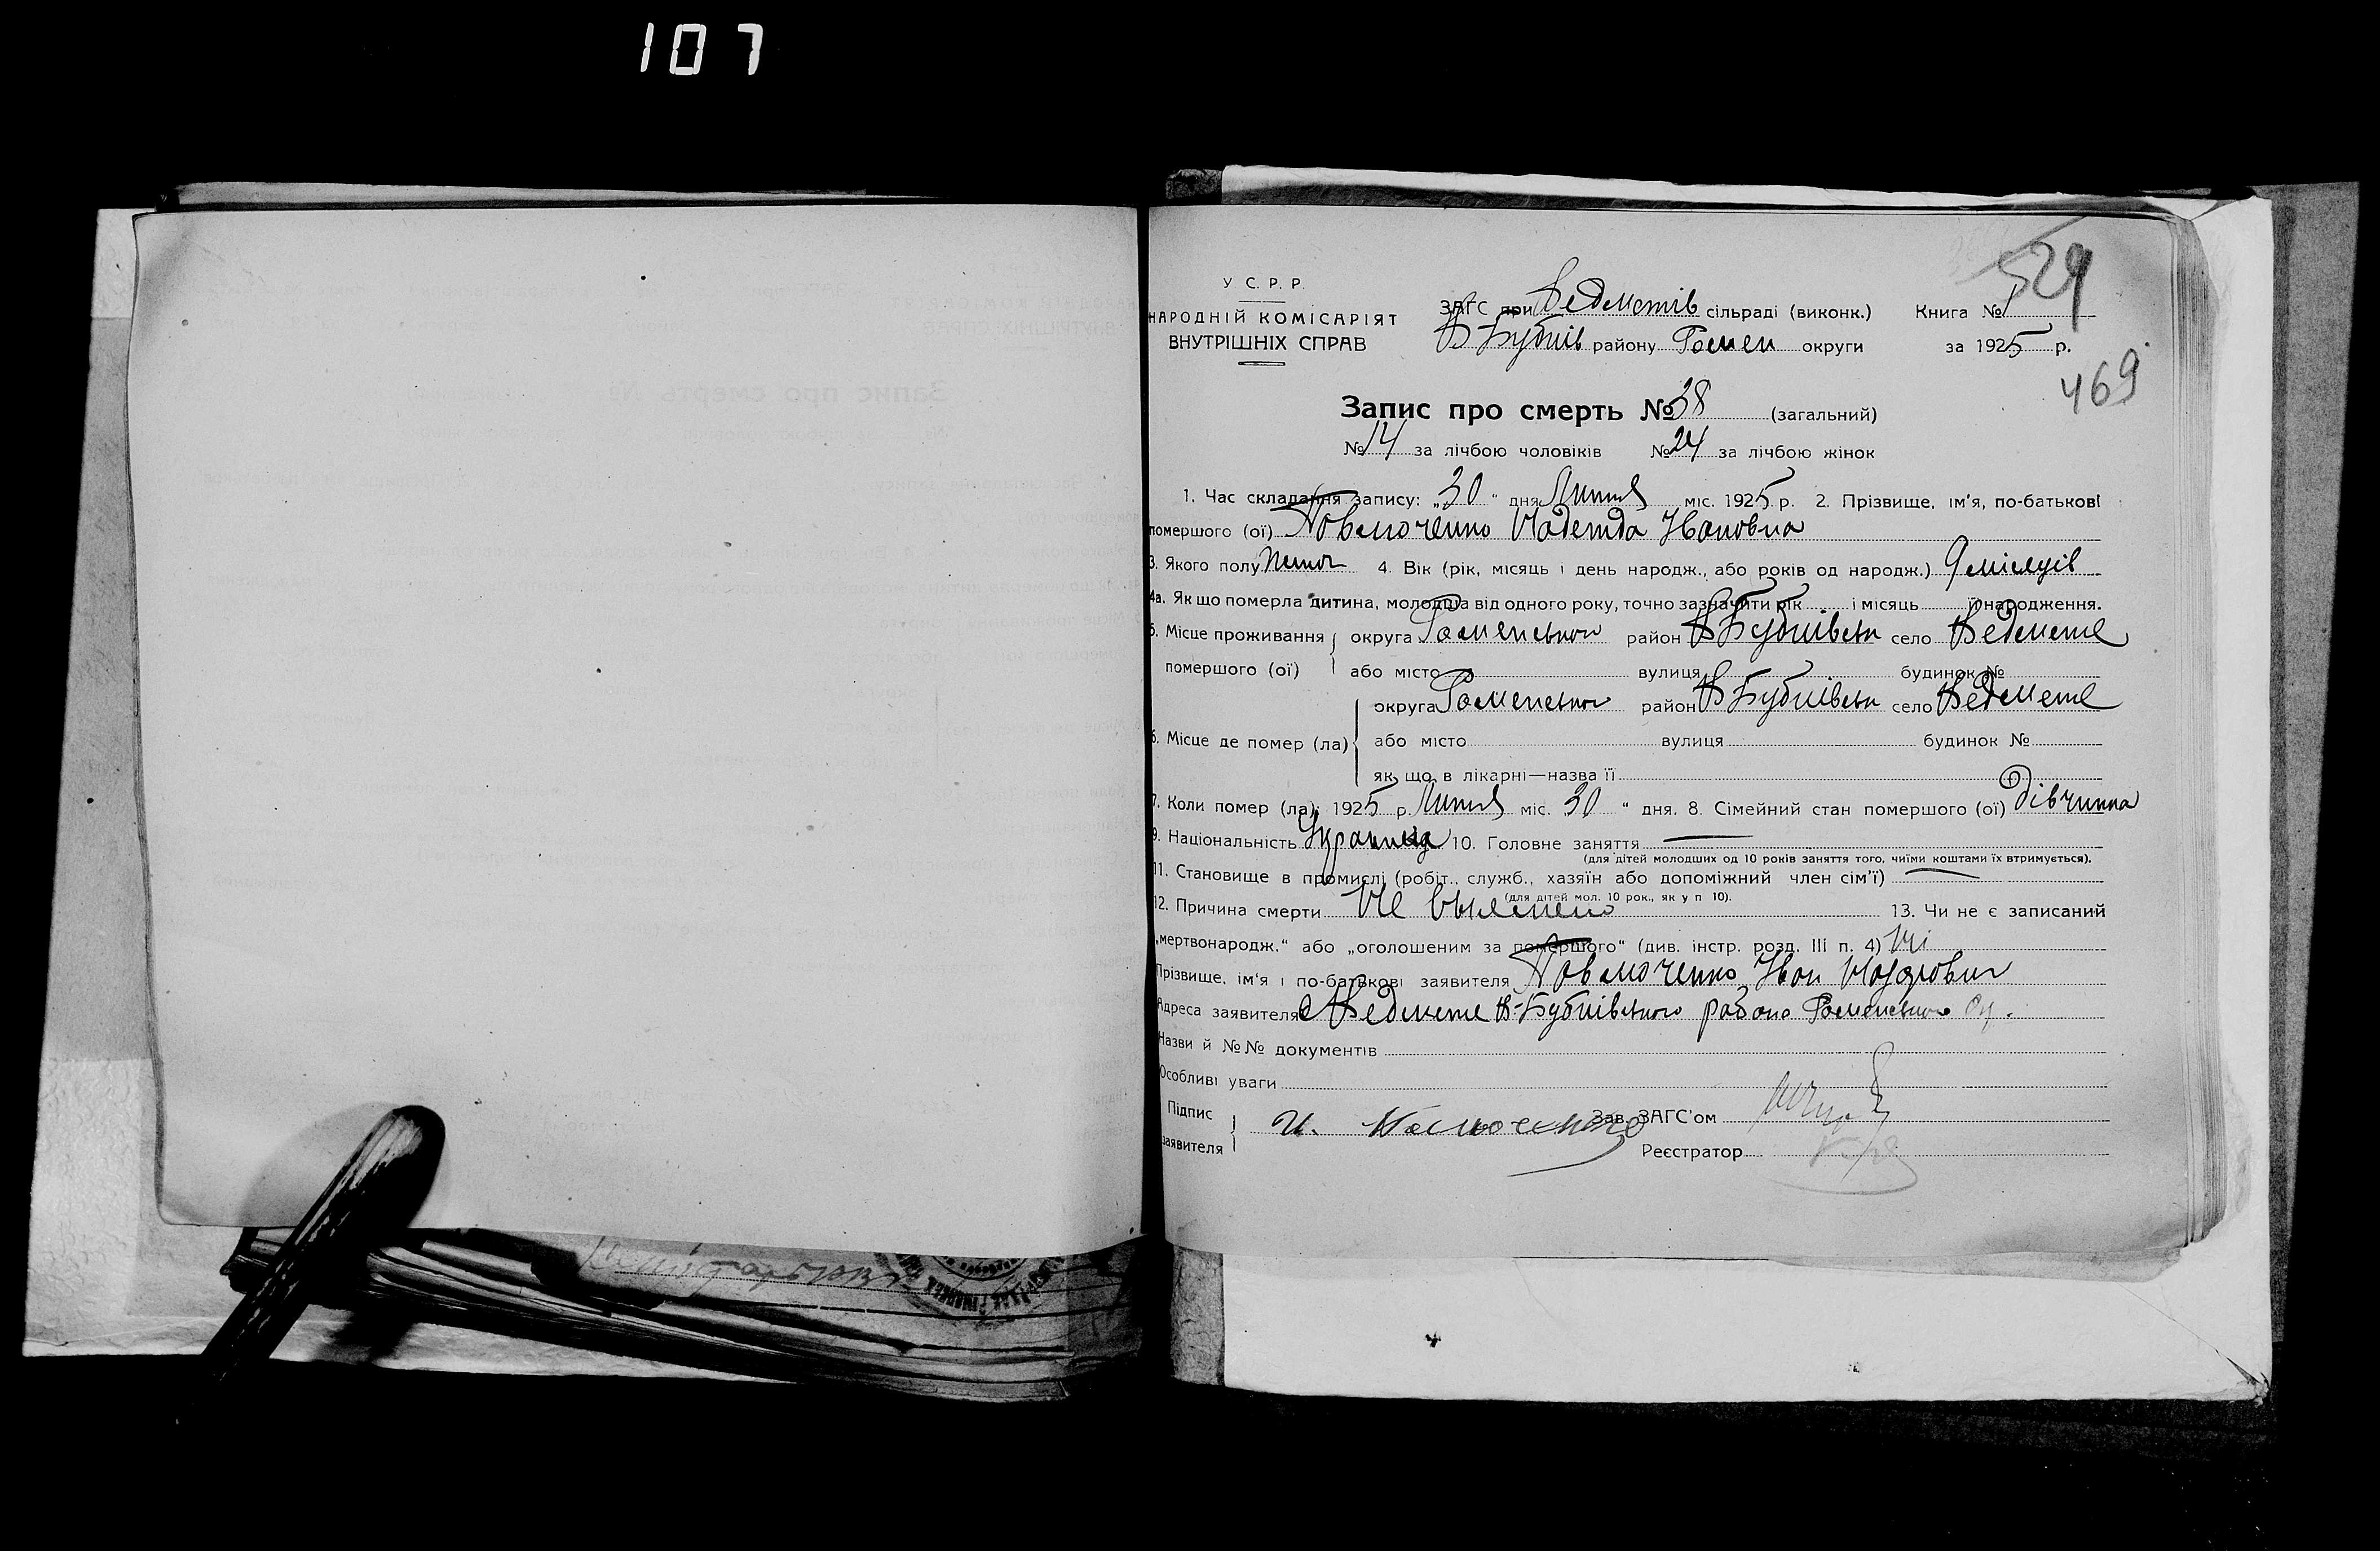 107
529
У С. Р. Р.
НАРОДНІЙ КОМІСАРІЯТ
ВНУТРІШНІХ СПРАВ
ЗАГС при Ведметів сільраді (виконк.) Книга № 1
В Бубнів району Ромен округи за 1925 р.
469
Запис про смерть № 38 (загальний)
№ 14 за лічбою чоловіків № 24 за лічбою жінок
1. Час складання запису: „30“ дня Липня міс. 1925 р. 2. Прізвище, ім'я, по-батькові
помершого (ої) Надежда Івановна
3. Якого полу 4. Вік (рік, місяць і день народж., або років од народж.) 9 місяців
4а. Як що померла дитина, молодша від одного року, точно зазначити рік і місяць її народження.
5. Місце проживання округа Роменської район В Бубнівськ село Ведмеже
помершого (ої) або місто вулиця будинок №
округа Роменської район В Бубнівськ село Ведмеже
6. Місце де помер (ла) або місто вулиця будинок №
як що в лікарні—назва її
7. Коли помер (ла): 1925 р. Липня міс. 30 “ дня. 8. Сімейний стан помершого (ої) дівчина
9. Національність 10. Головне заняття —
(для дітей молодших од 10 років заняття того, чиїми коштами їх втримується).
11. Становище в промислі (робіт., служб., хазяїн або допоміжний член сім'ї) —
(для дітей мол. 10 рок., як у п 10).
12. Причина смерти Не выяснено 13. Чи не є записаний
„мертвонародж.“ або „оголошеним за помершого“ (див. інстр. розд. III п. 4) Ні
Прізвище, ім'я і по-батькові заявителя Іван
Адреса заявителя с Ведмеже В-Бубнівського района Роменського ок.
Назви й №№ документів
Особливі уваги
Підпис
заявителя И.
Зав. ЗАГС'ом
Реєстратор